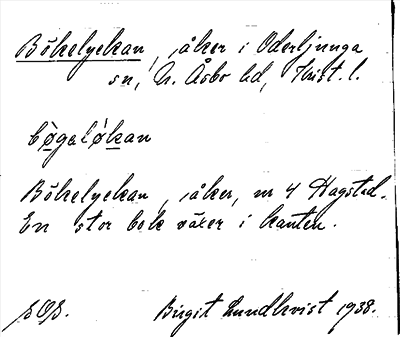 Bökelyckan, åker i Oderljunga
sn, N. Åsbo hd, Krist. l.
bøgeløkan
Bökelyckan, åker, nr 4 Hagstad.
En stor bok växer i kanten.
Birgit Lundkvist 1938.